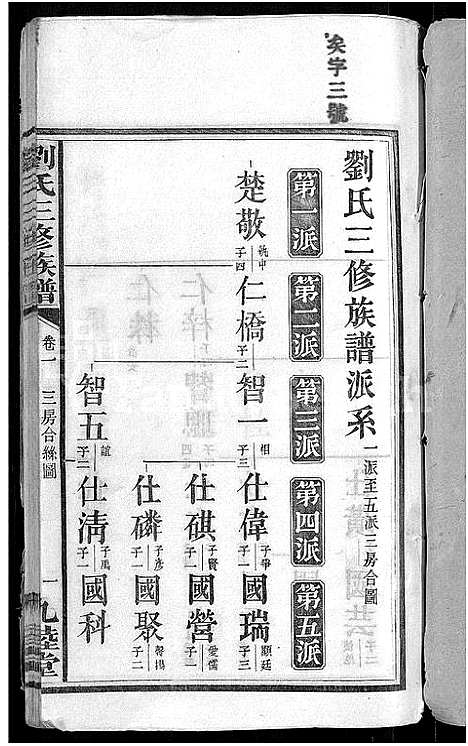 矣字三號
劉氏三修族譜派系 一派至五派三房合圖
第一派 第二派 第三派 第四派 第五派
楚敬 子四 仁橋 子二 智一 相 子三 仕偉 子華 子一 國瑞 顯廷 子三
仕礩 子賢 子一 國營 愛儒 子二
仕磷 子彥 子一 國聚 馨揚 子二
智五 誼 子二 仕清 子禹 子一 國科
劉氏三修族譜 卷一 三房合絲圖 一 九睦堂